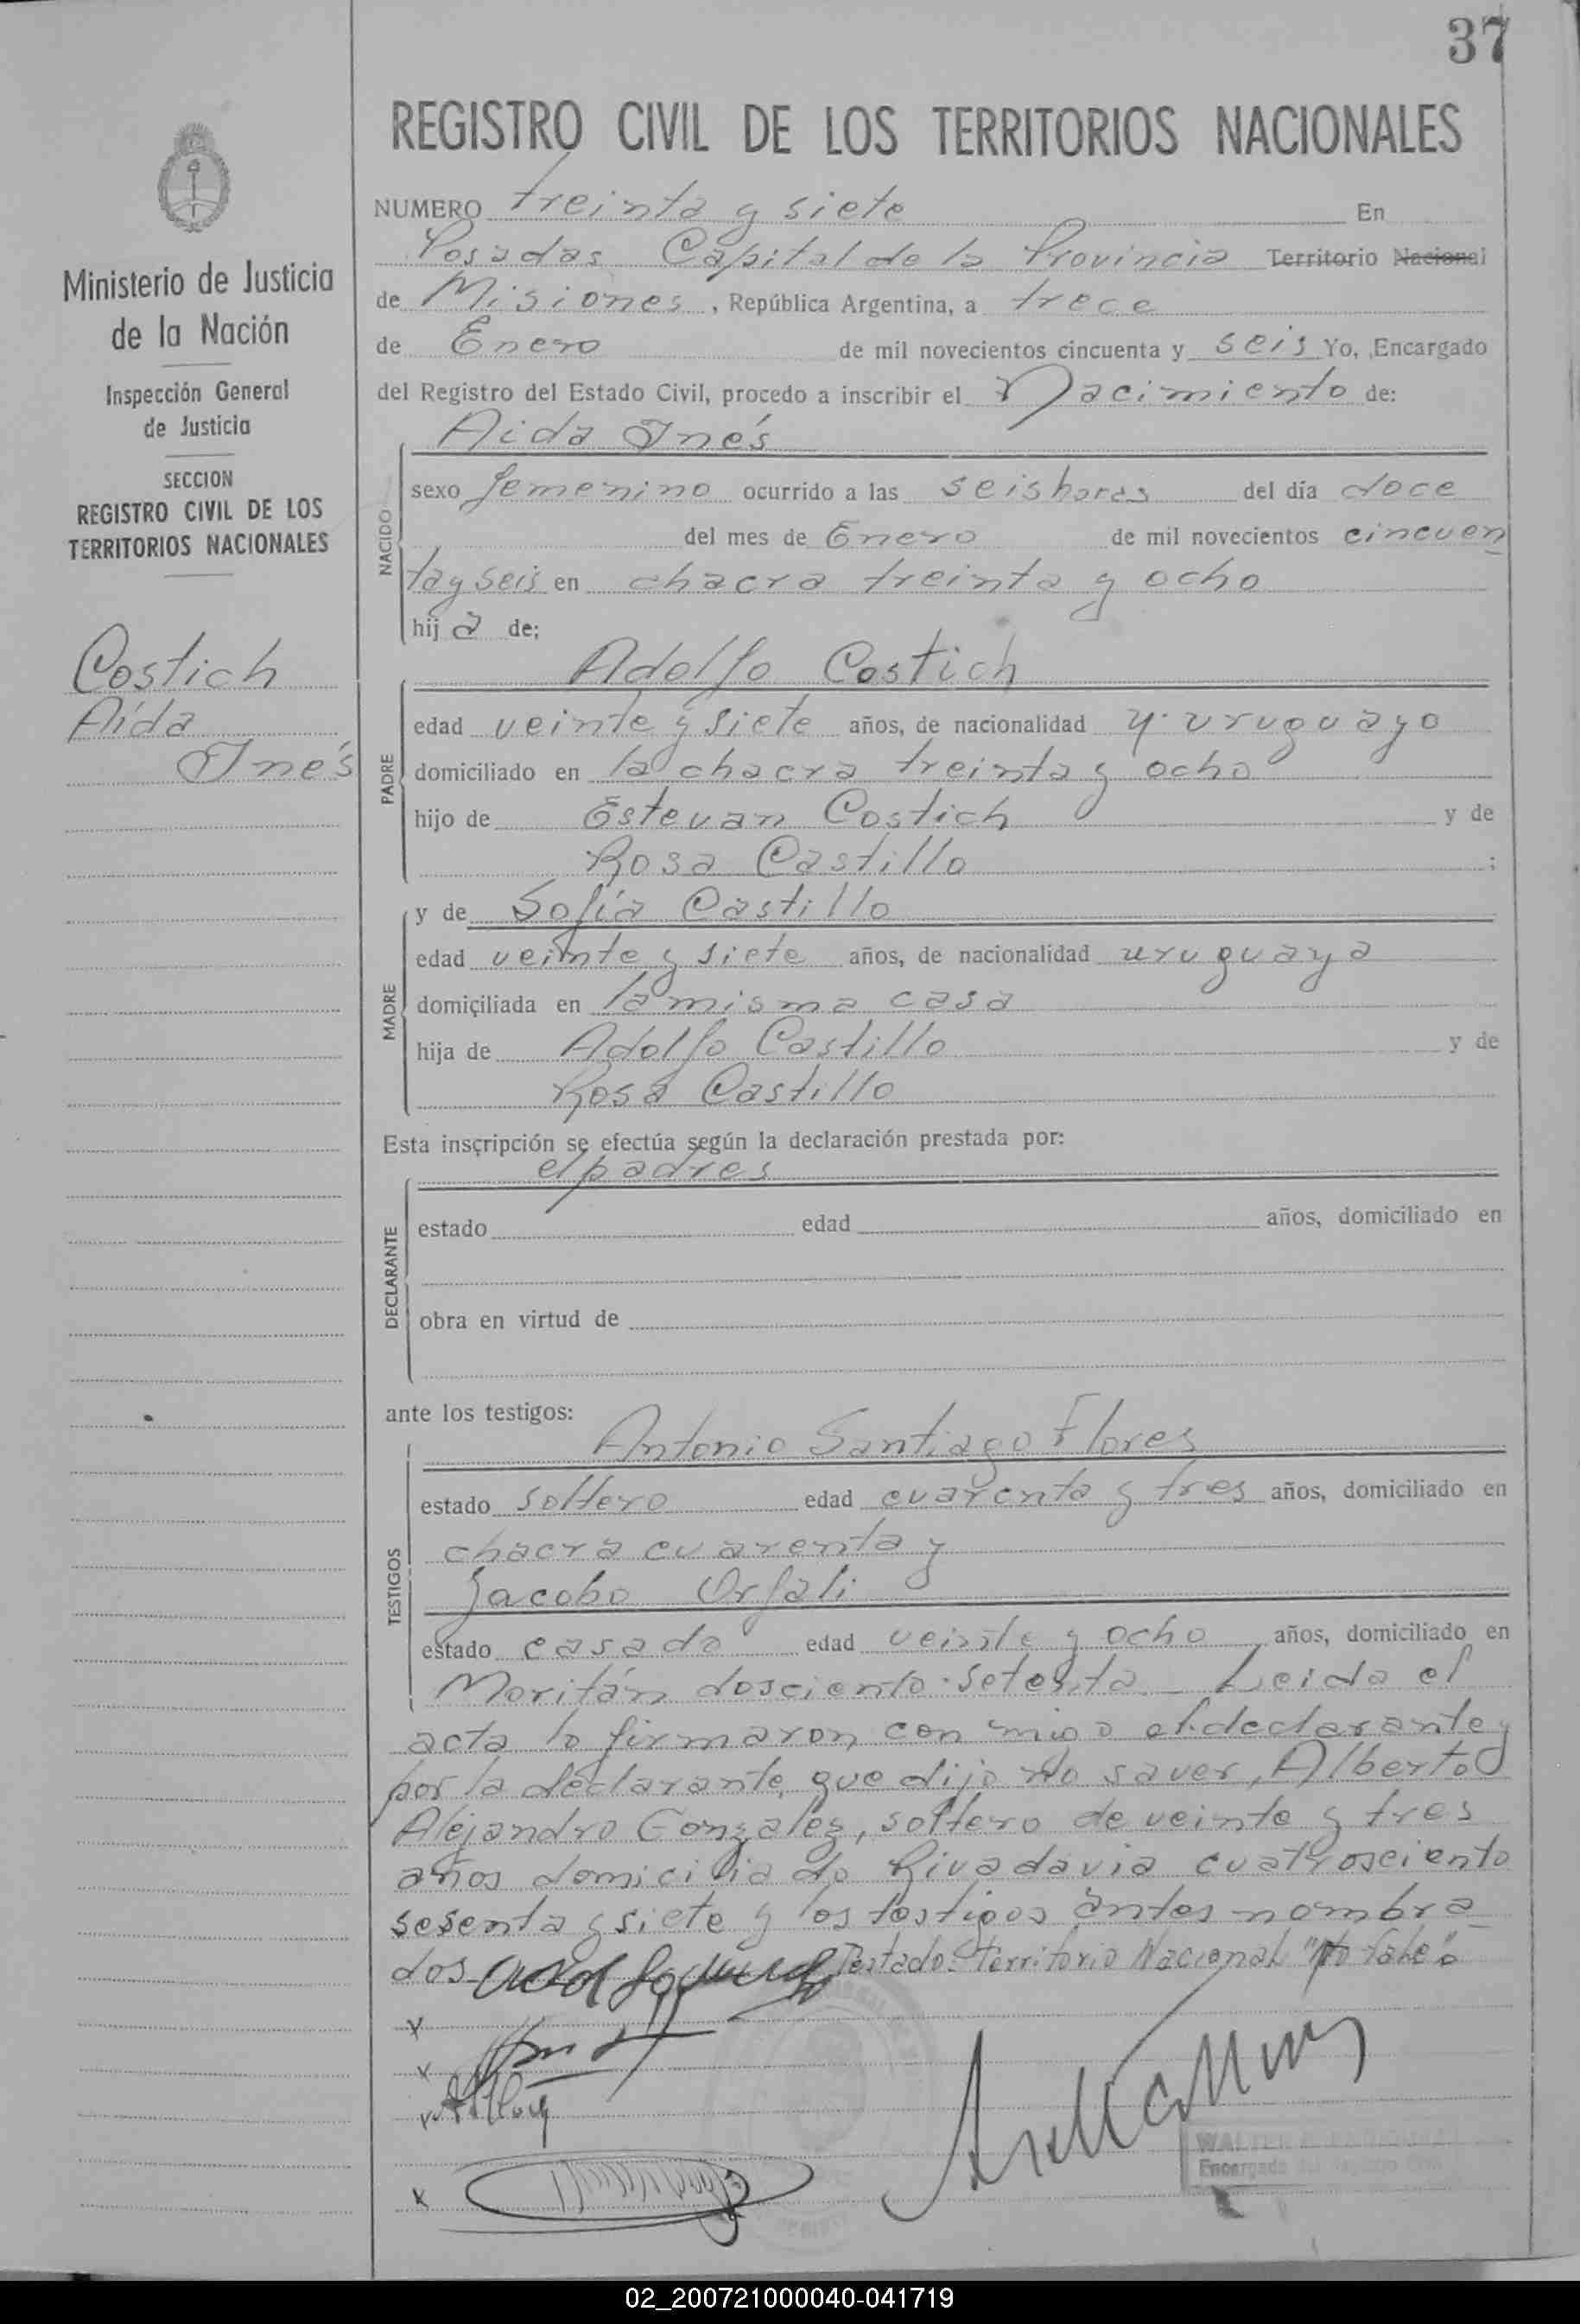 37
REGISTRO CIVIL DE LOS TERRITORIOS NACIONALES
Ministerio de Justicia
de la Nación
Inspección General
de Justicia
SECCION
REGISTRO CIVIL DE LOS
TERRITORIOS NACIONALES
Costich
Aída
Inés
NUMERO treinta y siete En
Posadas Capital de la Provincia Territorio Nacional
de Misiones, República Argentina, a trece
de Enero de mil novecientos cincuenta y seis Yo, Encargado
del Registro del Estado Civil, procedo a inscribir el Nacimiento de:
NACIDO
Aida Inés
sexo femenino ocurrido a las seis horas del día doce
del mes de Enero de mil novecientos cincuen
ta y seis en chacra treinta y ocho
hij a de;
PADRE
Adolfo Costich
edad veinte y siete años, de nacionalidad y. uruguayo
domiciliado en la chacra treinta y ocho
hijo de Estevan Costich y de
Rosa Castillo ;
MADRE
y de Sofía Castillo
edad veinte y siete años, de nacionalidad uruguaya
domiciliada en la misma casa
hija de Adolfo Castillo y de
Rosa Castillo
Esta inscripción se efectúa según la declaración prestada por:
DECLARANTE
el padres
estado edad años, domiciliado en
obra en virtud de
ante los testigos:
TESTIGOS
Antonio Santiago Flores
estado soltero edad cuarenta y tres años, domiciliado en
chacra cuarenta y
Jacobo Orfali
estado casado edad veinte y ocho años, domiciliado en
Moritán dosciento setenta _ Leida el
acta la firmaron con migo el declarante y
por la declarante que dijo no saver, Alberto
Alejandro Gonzalez, soltero de veinte y tres
años domiciliado Rivadavia cuatrosciento
sesenta y siete y los testigos antes nombra
dos Testado: Territorio Nacional "No Vale".
WALTER
Encargado del Registro Civil
02_200721000040-041719